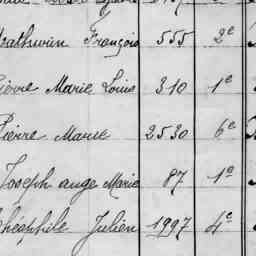 Mathurin François 555 2e
Pierre Marie Louis 310 1e
Pierre Marie 2530 6e
Joseph ange Marie 87 1e
Théophile Julien 1997 4e